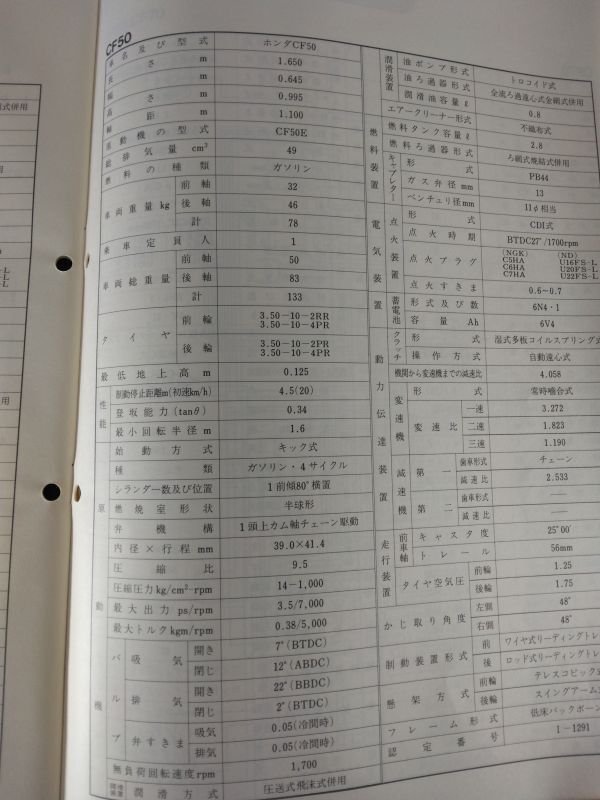 CF50
車名及び型式 ホンダCF50
長さ m 1.650
幅 m 0.645
高さ m 0.995
軸距 m 1.100
原動機の型式 CF50E
総排気量 cm³ 49
燃料の種類 ガソリン
車両重量kg 前軸 32
後軸 46
計 78
乗車定員 人 1
車両総重量 前軸 50
後軸 83
計 133
タイヤ 前輪 3.50-10-2RR
3.50-10-4PR
後輪 3.50-10-2PR
3.50-10-4PR
最低地上高 m 0.125
性能 制動停止距離m(初速km/h) 4.5(20)
登坂能力(tanθ) 0.34
最小回転半径 m 1.6
原動機 始動方式 キック式
種類 ガソリン・4サイクル
シランダー数及び位置 1前傾80°横置
燃焼室形状 半球形
弁機構 1頭上カム軸チェーン駆動
内径×行程 mm 39.0×41.4
圧縮比 9.5
圧縮圧力kg/cm²-rpm 14-1,000
最大出力 ps/rpm 3.5/7,000
最大トルクkgm/rpm 0.38/5,000
バルブ 吸気 開き 7°(BTDC)
閉じ 12°(ABDC)
排気 開き 22°(BBDC)
閉じ 2°(BTDC)
弁すきま 吸気 0.05(冷間時)
排気 0.05(冷間時)
無負荷回転速度rpm 1,700
潤滑装置 潤滑方式 圧送式飛沫式併用
潤滑装置 油ポンプ形式 トロコイド式
油ろ過形式 全流ろ過遠心式金網式併用
潤滑油容量 ℓ 0.8
燃料装置 エアークリーナー形式 不織布式
燃料タンク容量 ℓ 2.8
燃料ろ過形式 ろ網式焼結式併用
キャブレター 形式 PB44
ガス弁径mm 13
ベンチュリ径mm 11φ相当
電気装置 点火装置 形式 CDI式
点火時期 BTDC27°/1700rpm
点火プラグ (NGK) (ND)
C5HA U16FS-L
C6HA U20FS-L
C7HA U22FS-L
点火すきま 0.6~0.7
蓄電池 形式及び数 6N4・1
容量 Ah 6V4
動力伝達装置 クラッチ 形式 湿式多板コイルスプリング式
操作方式 自動遠心式
機関から変速機までの減速比 4.058
変速機 形式 常時噛合式
変速比 一速 3.272
二速 1.823
三速 1.190
減速機 第一 歯車形式 チェーン
減速比 2.533
第二 歯車形式 ——
減速比 ——
走行装置 前車軸 キャスタ度 25°00′
トレール 56mm
タイヤ空気圧 前輪 1.25
後輪 1.75
かじ取り角度 左側 48°
右側 48°
制動装置形式 前 ワイヤ式リーディングトレ
後 ロッド式リーディングトレ
懸架方式 前輪 テレスコピック式
後輪 スイングアーム式
フレーム形式 低床バックボーン
認定番号 I-1291
式併用